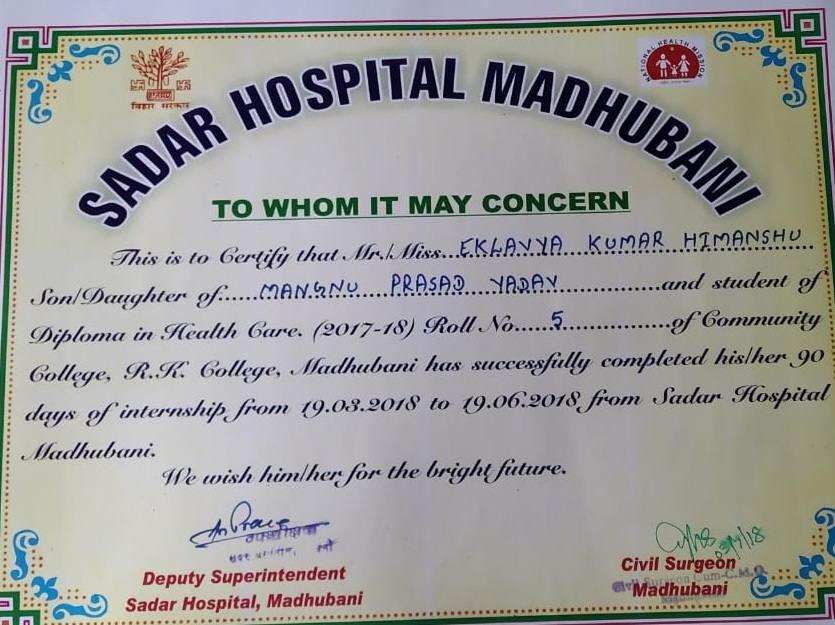 बिहार सरकार
NATIONAL HEALTH MISSION
SADAR HOSPITAL MADHUBANI
TO WHOM IT MAY CONCERN
This is to Certify that Mr./Miss...EKLAVYA KUMAR HIMANSHU
Son/Daughter of......MANGNU PRASAD YADAV...............and student of
Diploma in Health Care. (2017-18) Roll No......5..................of Community
College, R.K. College, Madhubani has successfully completed his/her 90
days of internship from 19.03.2018 to 19.06.2018 from Sadar Hospital
Madhubani.
We wish him/her for the bright future.
उपाधीक्षक
Deputy Superintendent
Sadar Hospital, Madhubani
Civil Surgeon
Civil Surgeon Cum-C.M.O.
Madhubani